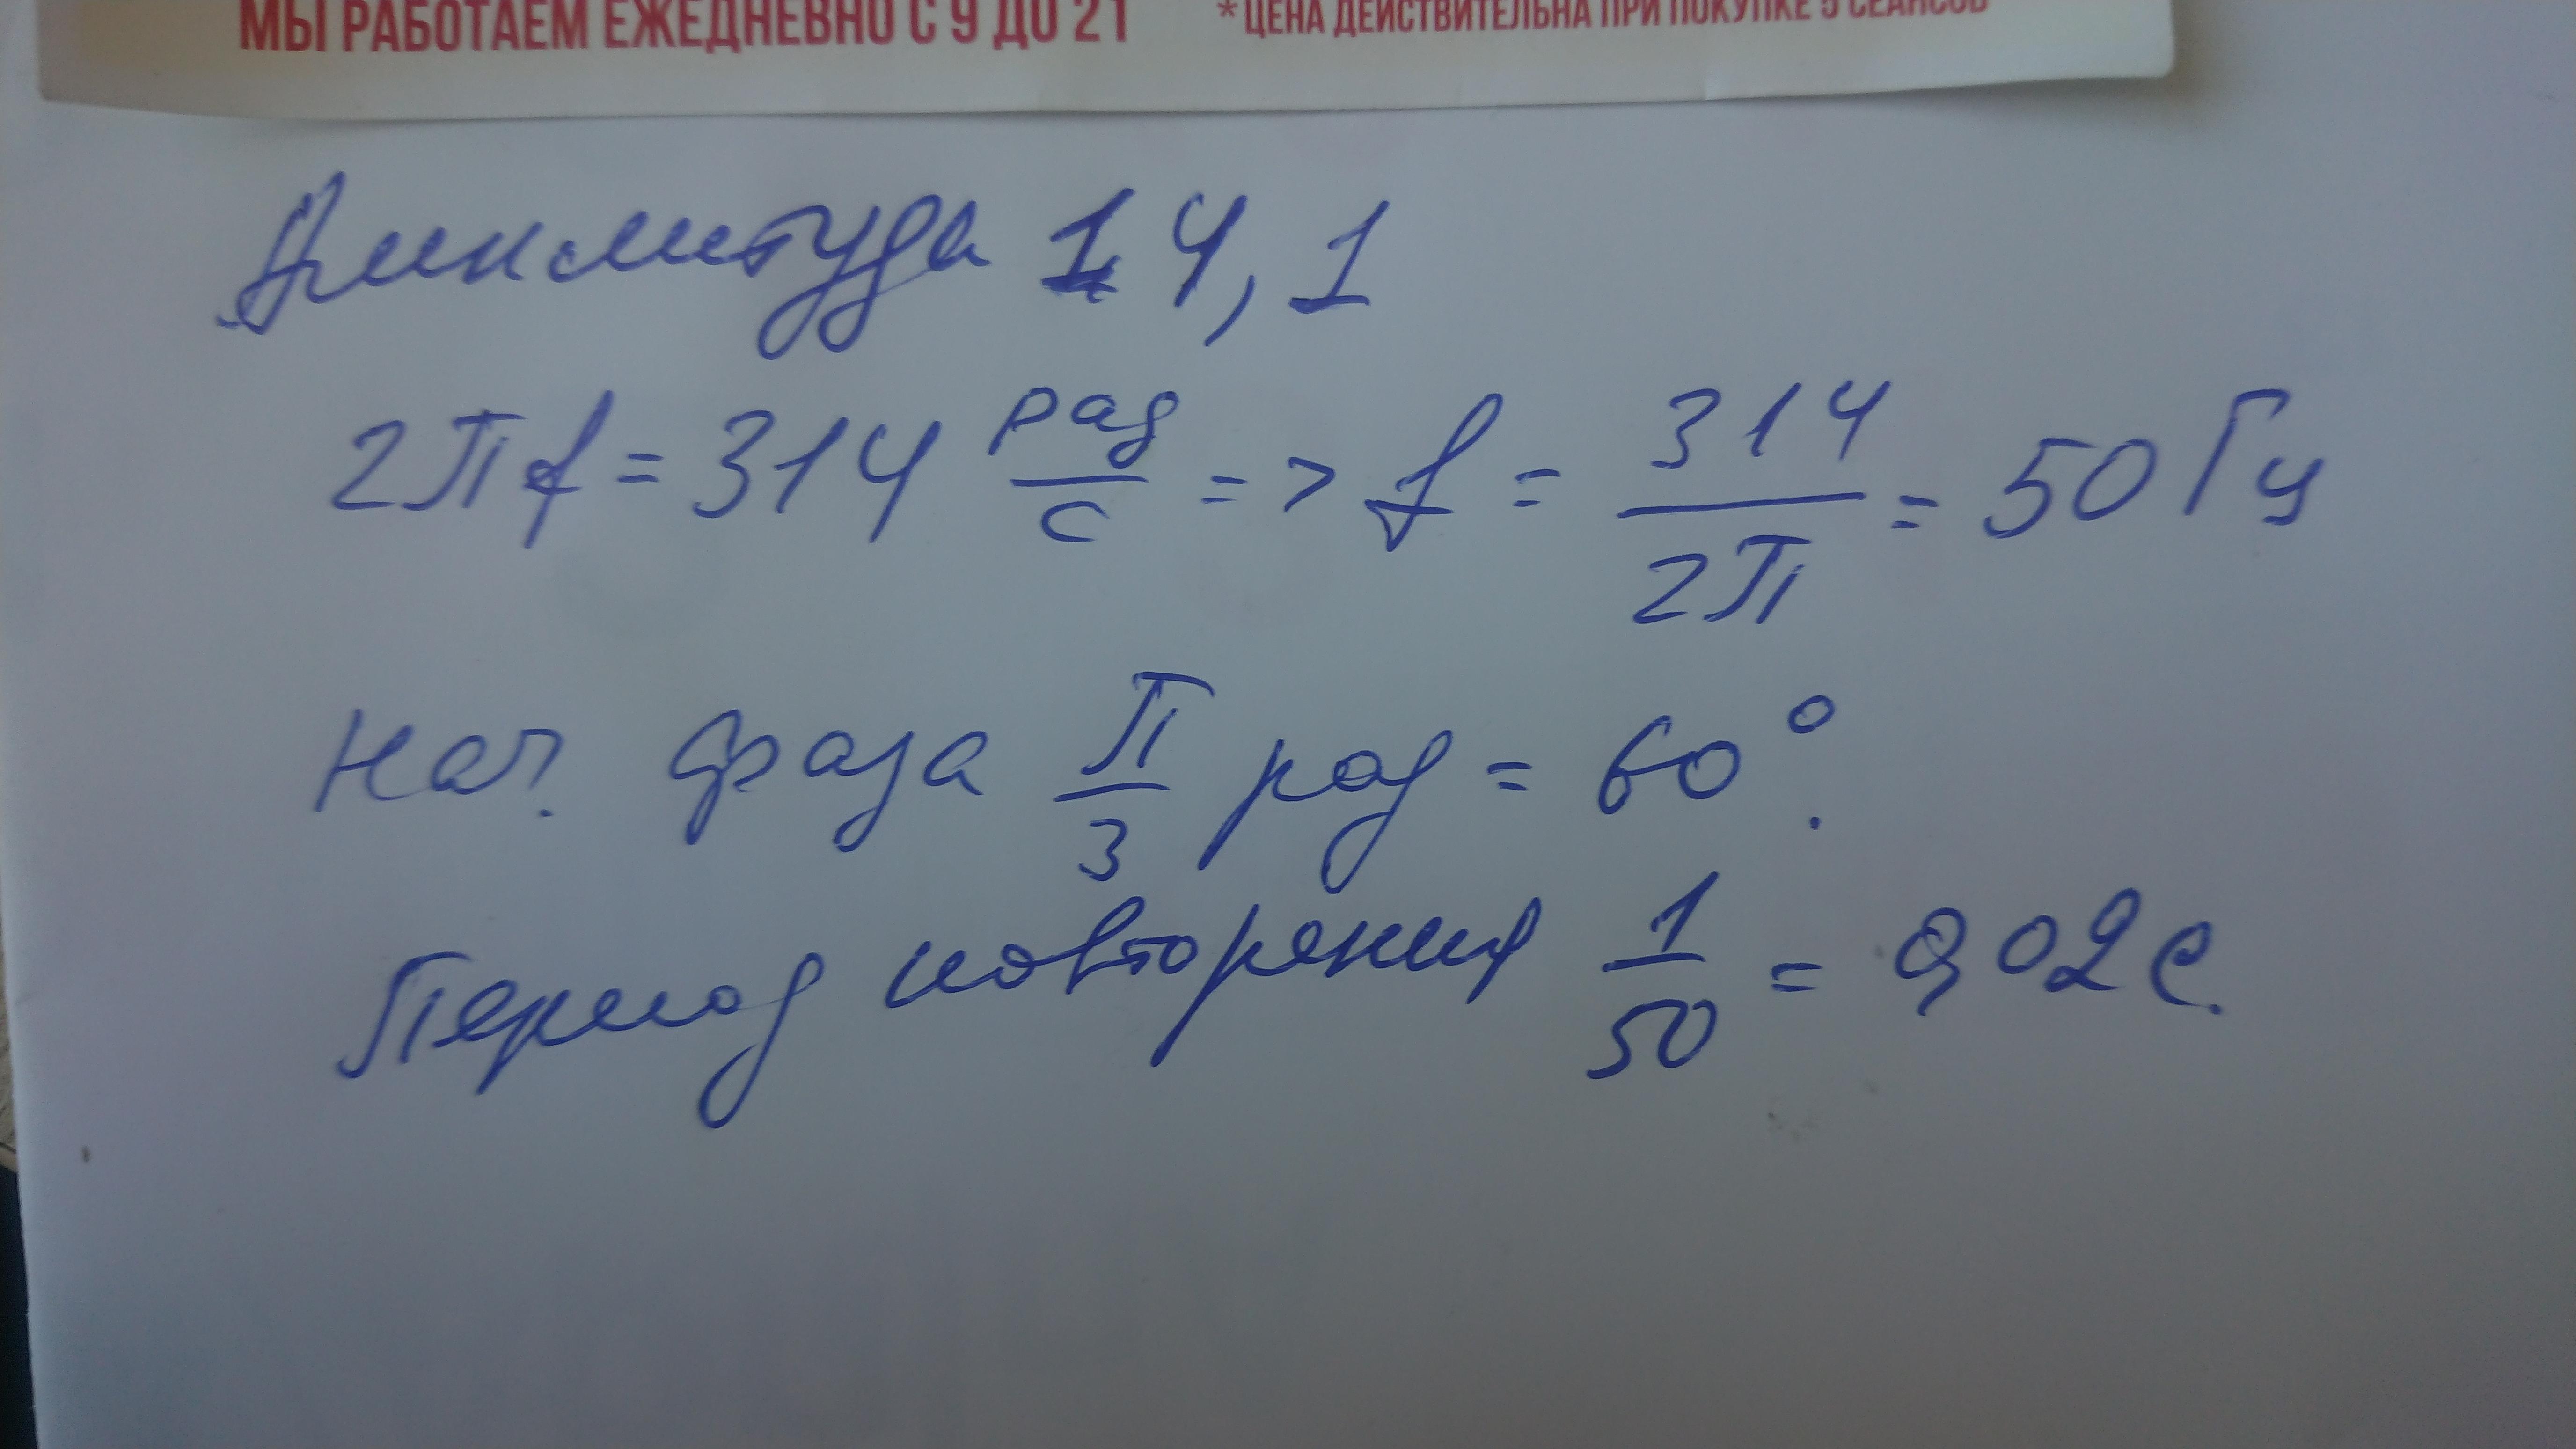 МЫ РАБОТАЕМ ЕЖЕДНЕВНО С 9 ДО 21
*ЦЕНА ДЕЙСТВИТЕЛЬНА ПРИ ПОКУПКЕ 5 СЕАНСОВ
Амплитуда 14,1
2πf = 314 рад/с => f = 314/2π = 50 Гц
Нач. фаза π/3 рад = 60°.
Период повторения 1/50 = 0,02 с.